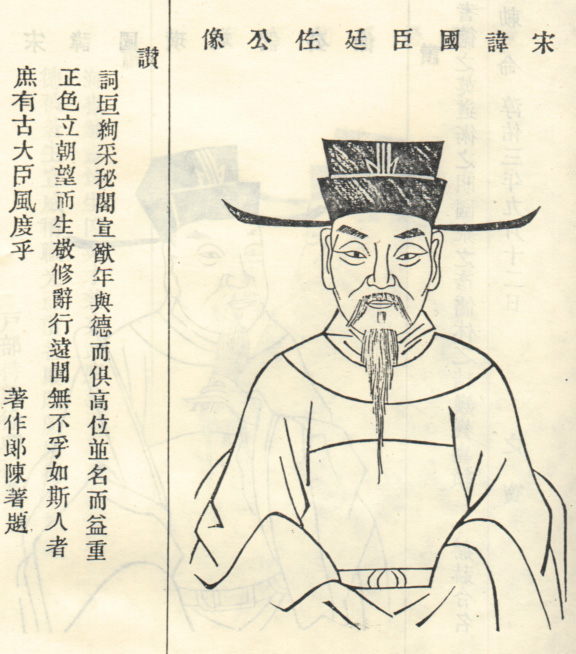 宋諱國臣廷佐公像
讚
詞垣絢采秘閣宣猷年與德而俱高位並名而益重
正色立朝望而生敬修辭行遠聞無不孚如斯人者
庶有古大臣風度乎
著作郎陳著題